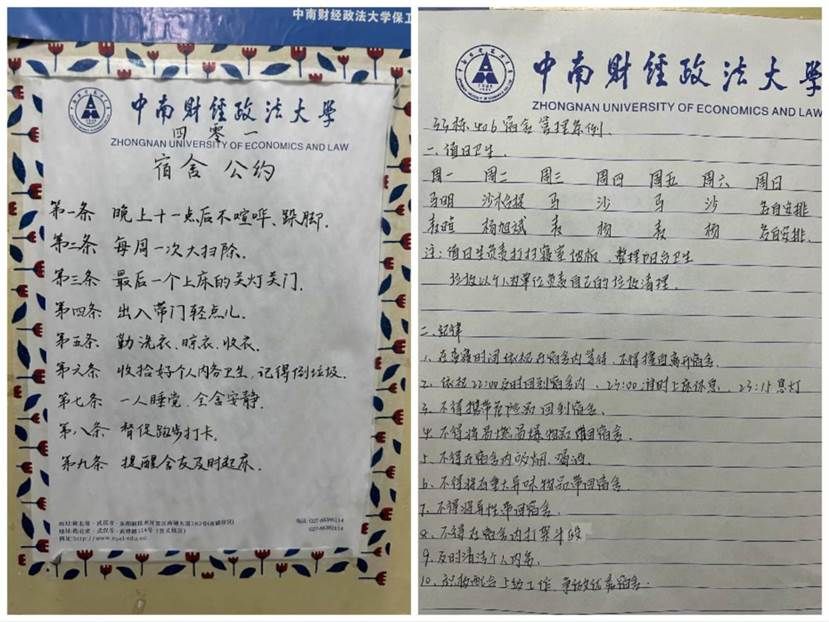 中南财经政法大学保卫
中南财经政法大学
ZHONGNAN UNIVERSITY OF ECONOMICS AND LAW
四零一
宿舍公约
第一条 晚上十一点后不喧哗、跺脚.
第二条 每周一次大扫除.
第三条 最后一个上床的关灯关门.
第四条 出入带门轻点儿.
第五条 勤洗衣、晾衣、收衣.
第六条 收拾好个人内务卫生、记得倒垃圾.
第七条 一人睡觉,全舍安静.
第八条 督促跑步打卡.
第九条 提醒舍友及时起床.
中南财经政法大学
ZHONGNAN UNIVERSITY OF ECONOMICS AND LAW
宿舍管理条例.
一、值日卫生
周一 周二 周三 周四 周五 周六 周日
马明 马 沙 马 沙 各自安排
杨旭斌 袁 杨 袁 杨 各自安排.
注:值日生负责打扫寝室地板,整理阳台卫生
垃圾以个人为单位负责自己的垃圾清理.
二、纪律
1、在查寝时间 在宿舍内等待,不得擅自离开宿舍.
2、22:00 回到宿舍内、23:00准时上床休息、23:15熄灯
3、不得携带危险品回到宿舍.
4、不得将易燃易爆物品带回宿舍.
5、不得在宿舍内吸烟、喝酒.
6、不得将有重大异味物品带回宿舍.
7、不得将异性带回宿舍.
8、不得在宿舍内打架斗殴
9、及时清洁个人内务.
10、积极配合上级工作,争做优秀宿舍.